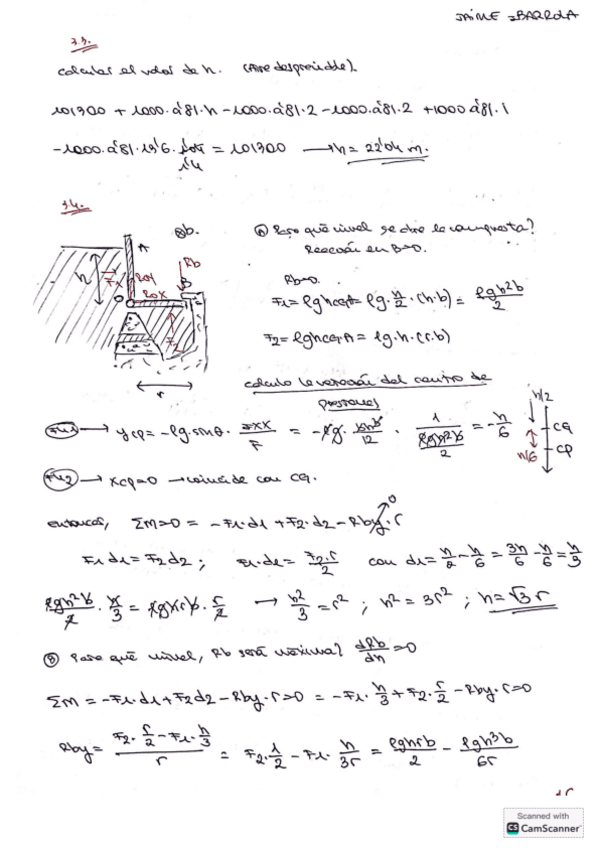 JAIME IBARROLA
3.3.
calcular el valor de h. (Aire despreciable).
101300 + 1000·9'81·h - 1000·9'81·2 - 1000·9'81·2 + 1000·9'81·1
- 1000·9'81·13'6· = 101300 → h = 22'04 m.
3.4.
A
b.
Rb
h
F1
ROY
ROX
B
O
F2
r
(A) Para qué nivel se abre la compuerta?
Reacción en B=0.
Rb=0.
F1 = ρghcgA = ρg·h/2·(h·b) = ρgh²b/2
F2 = ρghcgA = ρg·h·(r·b)
calculo la versión del centro de
presiones
h/2
CG
h/6
CP
→ ycp = -ρg·sinθ·Ixx/F = -ρg·bh³/12 · 1/(ρgh²b/2) = -h/6
→ xcp=0 → coincide con CG.
entonces, ΣM=0 = -F1·d1 + F2·d2 - Rby·r
0
F1d1 = F2d2 ; F1·d1 = F2·r/2 con d1 = h/2 - h/6 = 3h/6 - h/6 = h/3
ρgh²b/2 · h/3 = ρghrb · r/2 → h²/3 = r² ; h² = 3r² ; h = √3 r
(B) Para qué nivel, Rb será máxima? dRb/dh = 0
ΣM = -F1·d1 + F2d2 - Rby·r = 0 = -F1·h/3 + F2·r/2 - Rby·r = 0
Rby = (F2·r/2 - F1·h/3)/r = F2·1/2 - F1·h/3r = ρghrb/2 - ρgh³b/6r
Scanned with
CS CamScanner